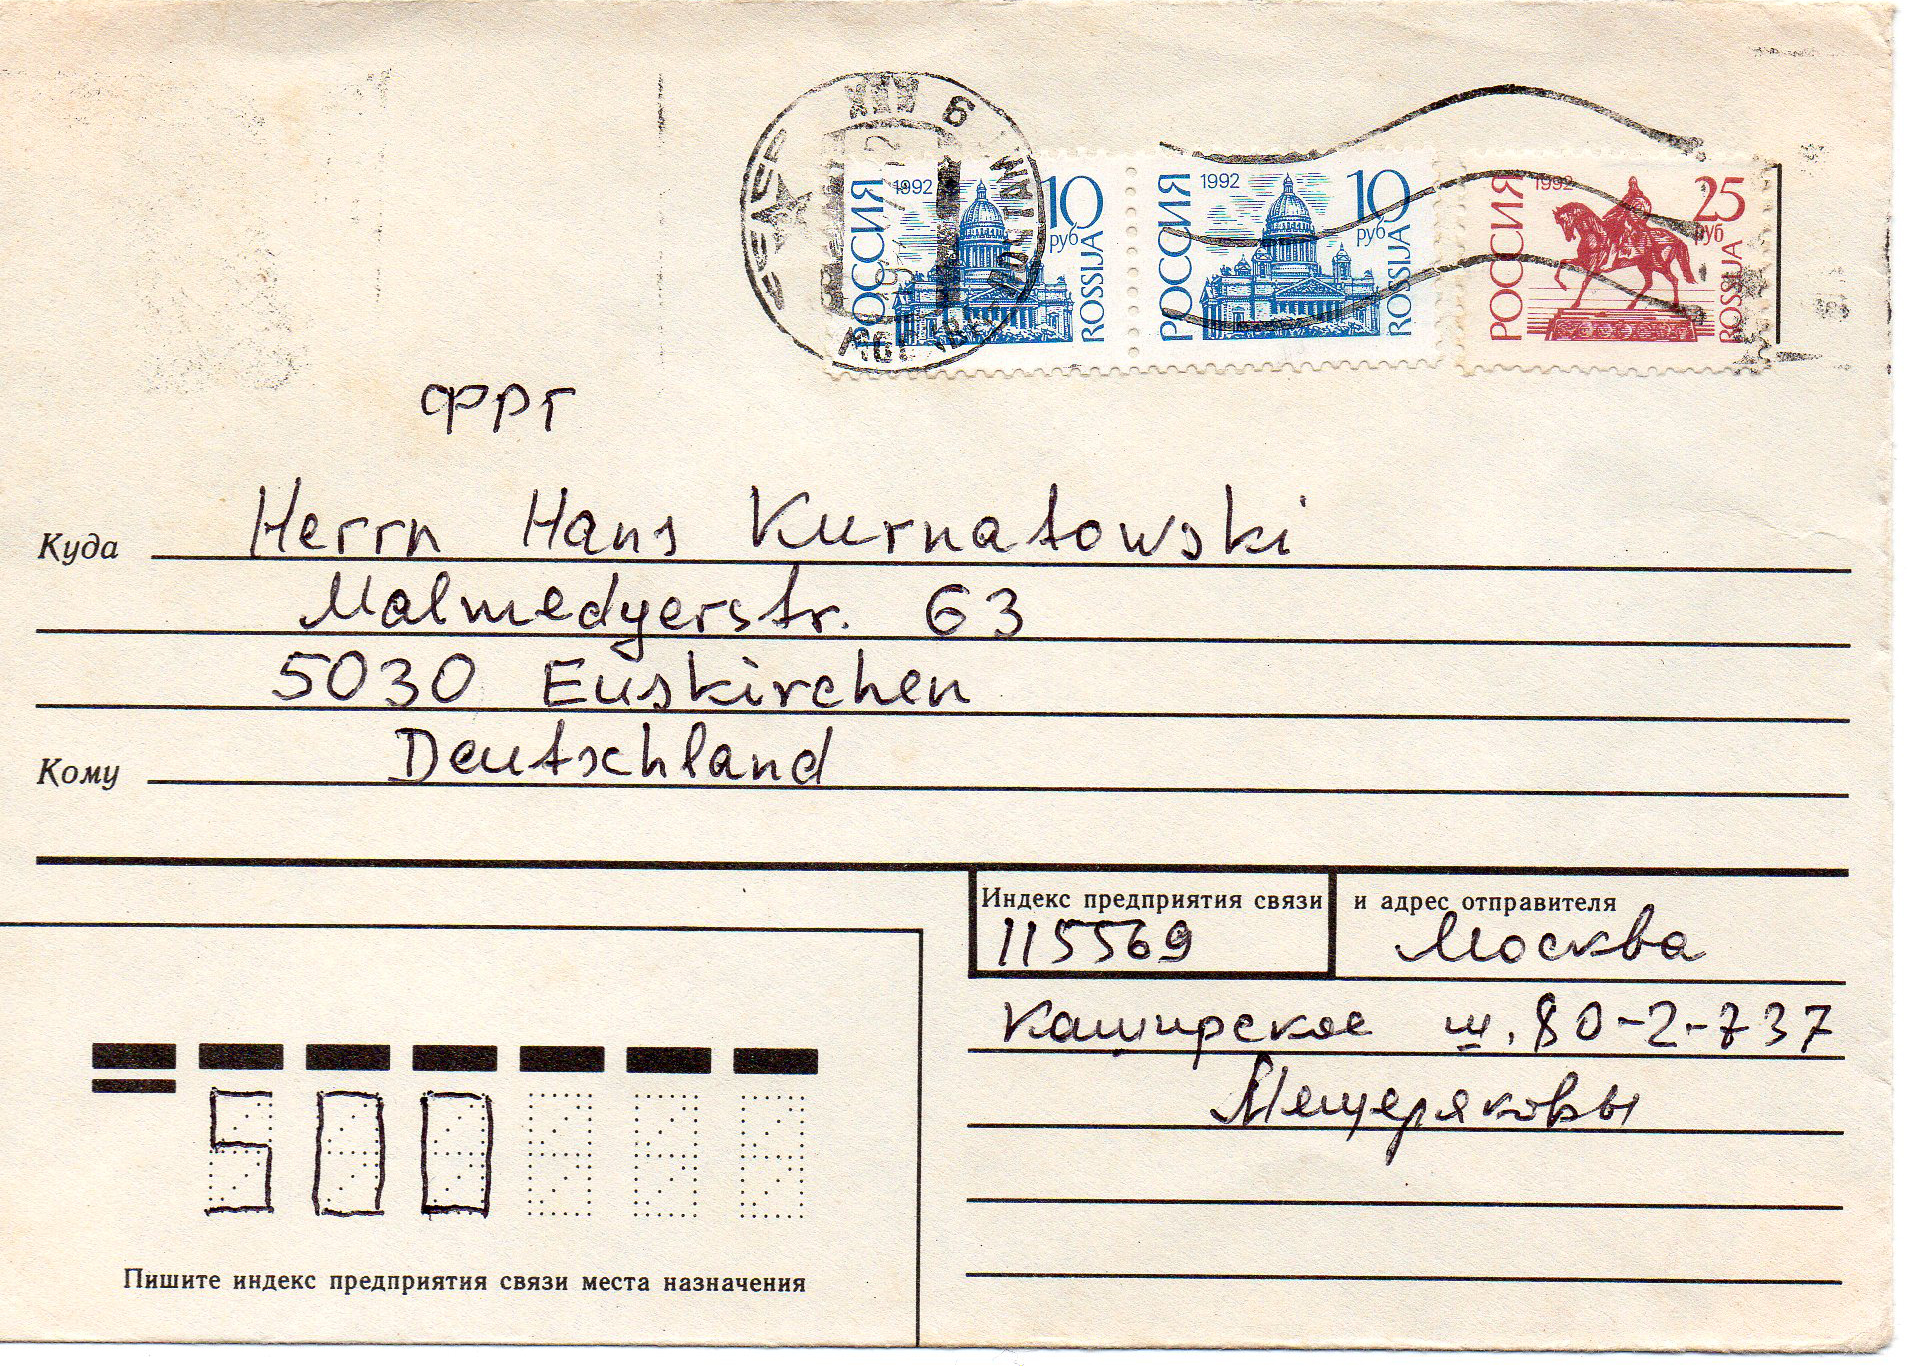 РОССИЯ 1992 10 руб ROSSIJA
РОССИЯ 1992 10 руб ROSSIJA
РОССИЯ 1992 25 руб ROSSIJA
ФРГ
Куда Herrn Hans Kurnatowski
Malmedyerstr. 63
5030 Euskirchen
Кому Deutschland
Индекс предприятия связи и адрес отправителя
115569 Москва
Каширское ш. 80-2-737
Мещеряковы
500
Пишите индекс предприятия связи места назначения